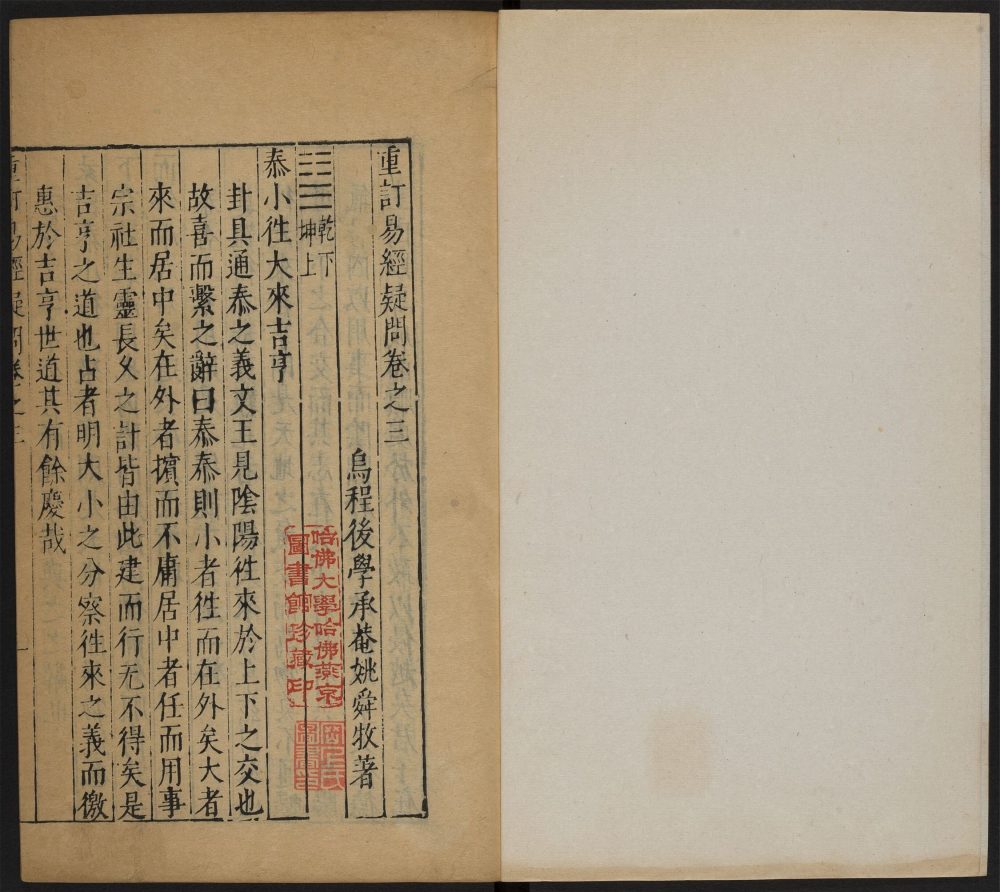 重訂易經疑問卷之三
烏程後學承菴姚舜牧著
䷊
乾下
坤上
泰小徃大來吉亨
卦具通泰之義文王見陰陽徃來於上下之交也
故喜而繫之辭曰泰泰則小者徃而在外矣大者
來而居中矣在外者擯而不庸居中者任而用事
宗社生靈長久之計皆由此建而行无不得矣是
吉亨之道也占者明大小之分察徃來之義而徼
惠於吉亨世道其有餘慶哉
重訂易經疑問卷之三
一
哈佛大學哈佛燕京
圖書館珍藏印